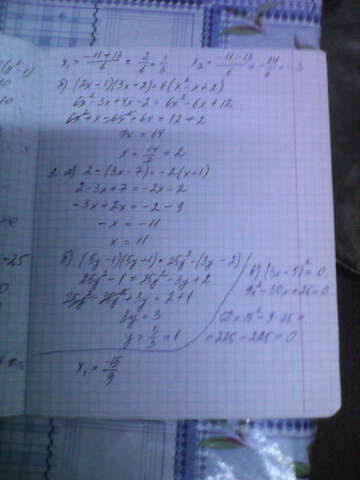 x₁ = (-11+13)/6 = 2/6 = 1/3    x₂ = (-11-13)/6 = -24/6 = -4
б) (2x-1)(3x+2) = 6(x²-x+2)
6x²-3x+4x-2 = 6x²-6x+12
6x²+x-6x²+6x = 12+2
7x = 14
x = 14/7 = 2
2. а) 2-(3x-7) = -2(x+1)
2-3x+7 = -2x-2
-3x+2x = -2-9
-x = -11
x = 11
б) (5y-1)(5y+1) = 25y²-(3y-2)
25y²-1 = 25y²-3y+2
25y²-25y²+3y = 2+1
3y = 3
y = 3/3 = 1
в) (3x-5)² = 0
9x²-30x+25 = 0
= 225-225 = 0
x₁ = -15/9